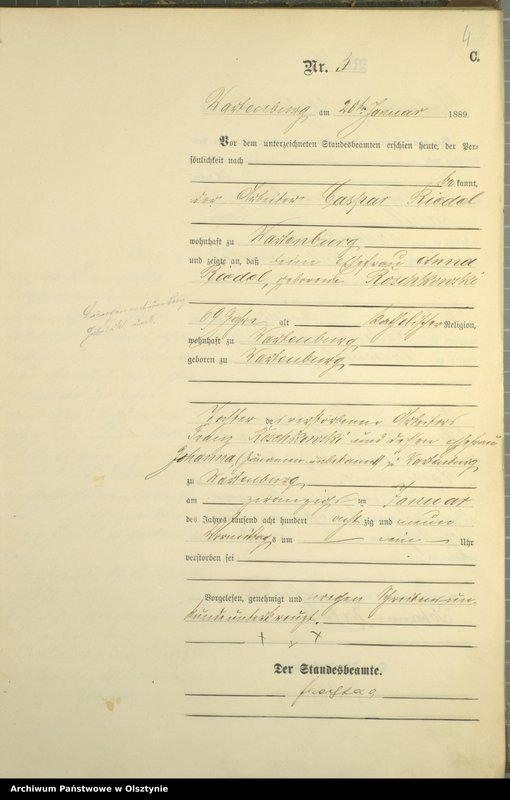 4
C.
Nr. 5
Wartenburg am 20ten Januar 1889.
Vor dem unterzeichneten Standesbeamten erschien heute, der Per-
sönlichkeit nach
be kannt,
der Arbeiter Caspar Riedel
wohnhaft zu Wartenburg
und zeigte an, daß seine Ehefrau Anna
Riedel, geborene Roschkowski
69 Jahre alt katholischer Religion,
wohnhaft zu Wartenburg
geboren zu Wartenburg
Tochter des verstorbenen Arbeiters
Franz Roschkowski und dessen Ehefrau
Johanna, Zuname unbekannt zu Wartenburg
zu Wartenburg
am zwanzigsten Januar
des Jahres tausend acht hundert acht zig und neun
Vormittags um ein Uhr
verstorben sei
Vorgelesen, genehmigt und wegen Schreibensun-
kunde unterkreuzt.
+ + +
Der Standesbeamte.
Freytag
Archiwum Państwowe w Olsztynie